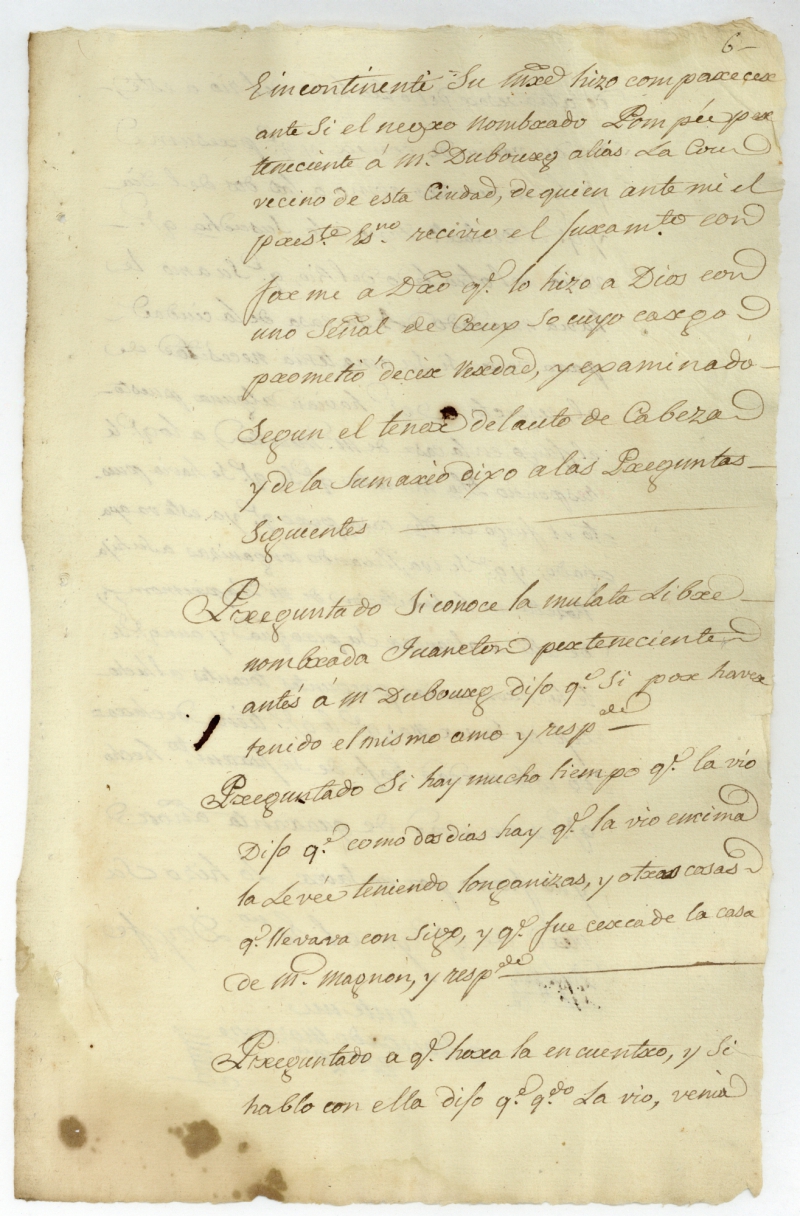 6-
E incontinenti Su Mrxd hizo comparecer
ante Si el negro nombrado Pompée per
teneciente á Mr. Dubourg alias La Cour
vecino de esta Ciudad, de quien ante mi el
preste. Esno. recivio el Juramto con
forme a Dro qe. lo hizo a Dios con
uno Señal de Crup So cuyo cargo
prometió decir Verdad, y examinado
Segun el tenor del auto de Cabeza
y de la Sumario dixo a las Preguntas
Siguientes
Preguntado Si conoce la mulata Libre
nombrada Juaneton perteneciente
antés á Mr Dubourg diso qe. Si por haver
tenido el mismo amo y respde
Preguntado Si hay mucho tiempo qe. la vio
Diso qe. como dos dias hay qe. la vio encima
la Levée teniendo longanizas, y otras cosas
qe. llevava con Sigo, y qe. fue cerca de la casa
de Mr. Magnon, y respde
Preguntado a qe. hora la encuentro, y Si
hablo con ella diso qe. qdo La vio, venia